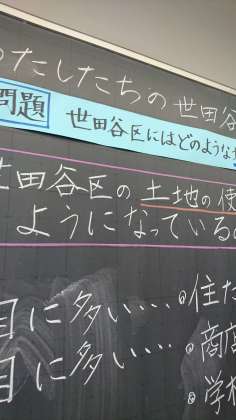 わたしたちの世田谷
問題 世田谷区にはどのような
世田谷区の土地の使
ようになっている
目に多い…・住
目に多い…・商店
・学校